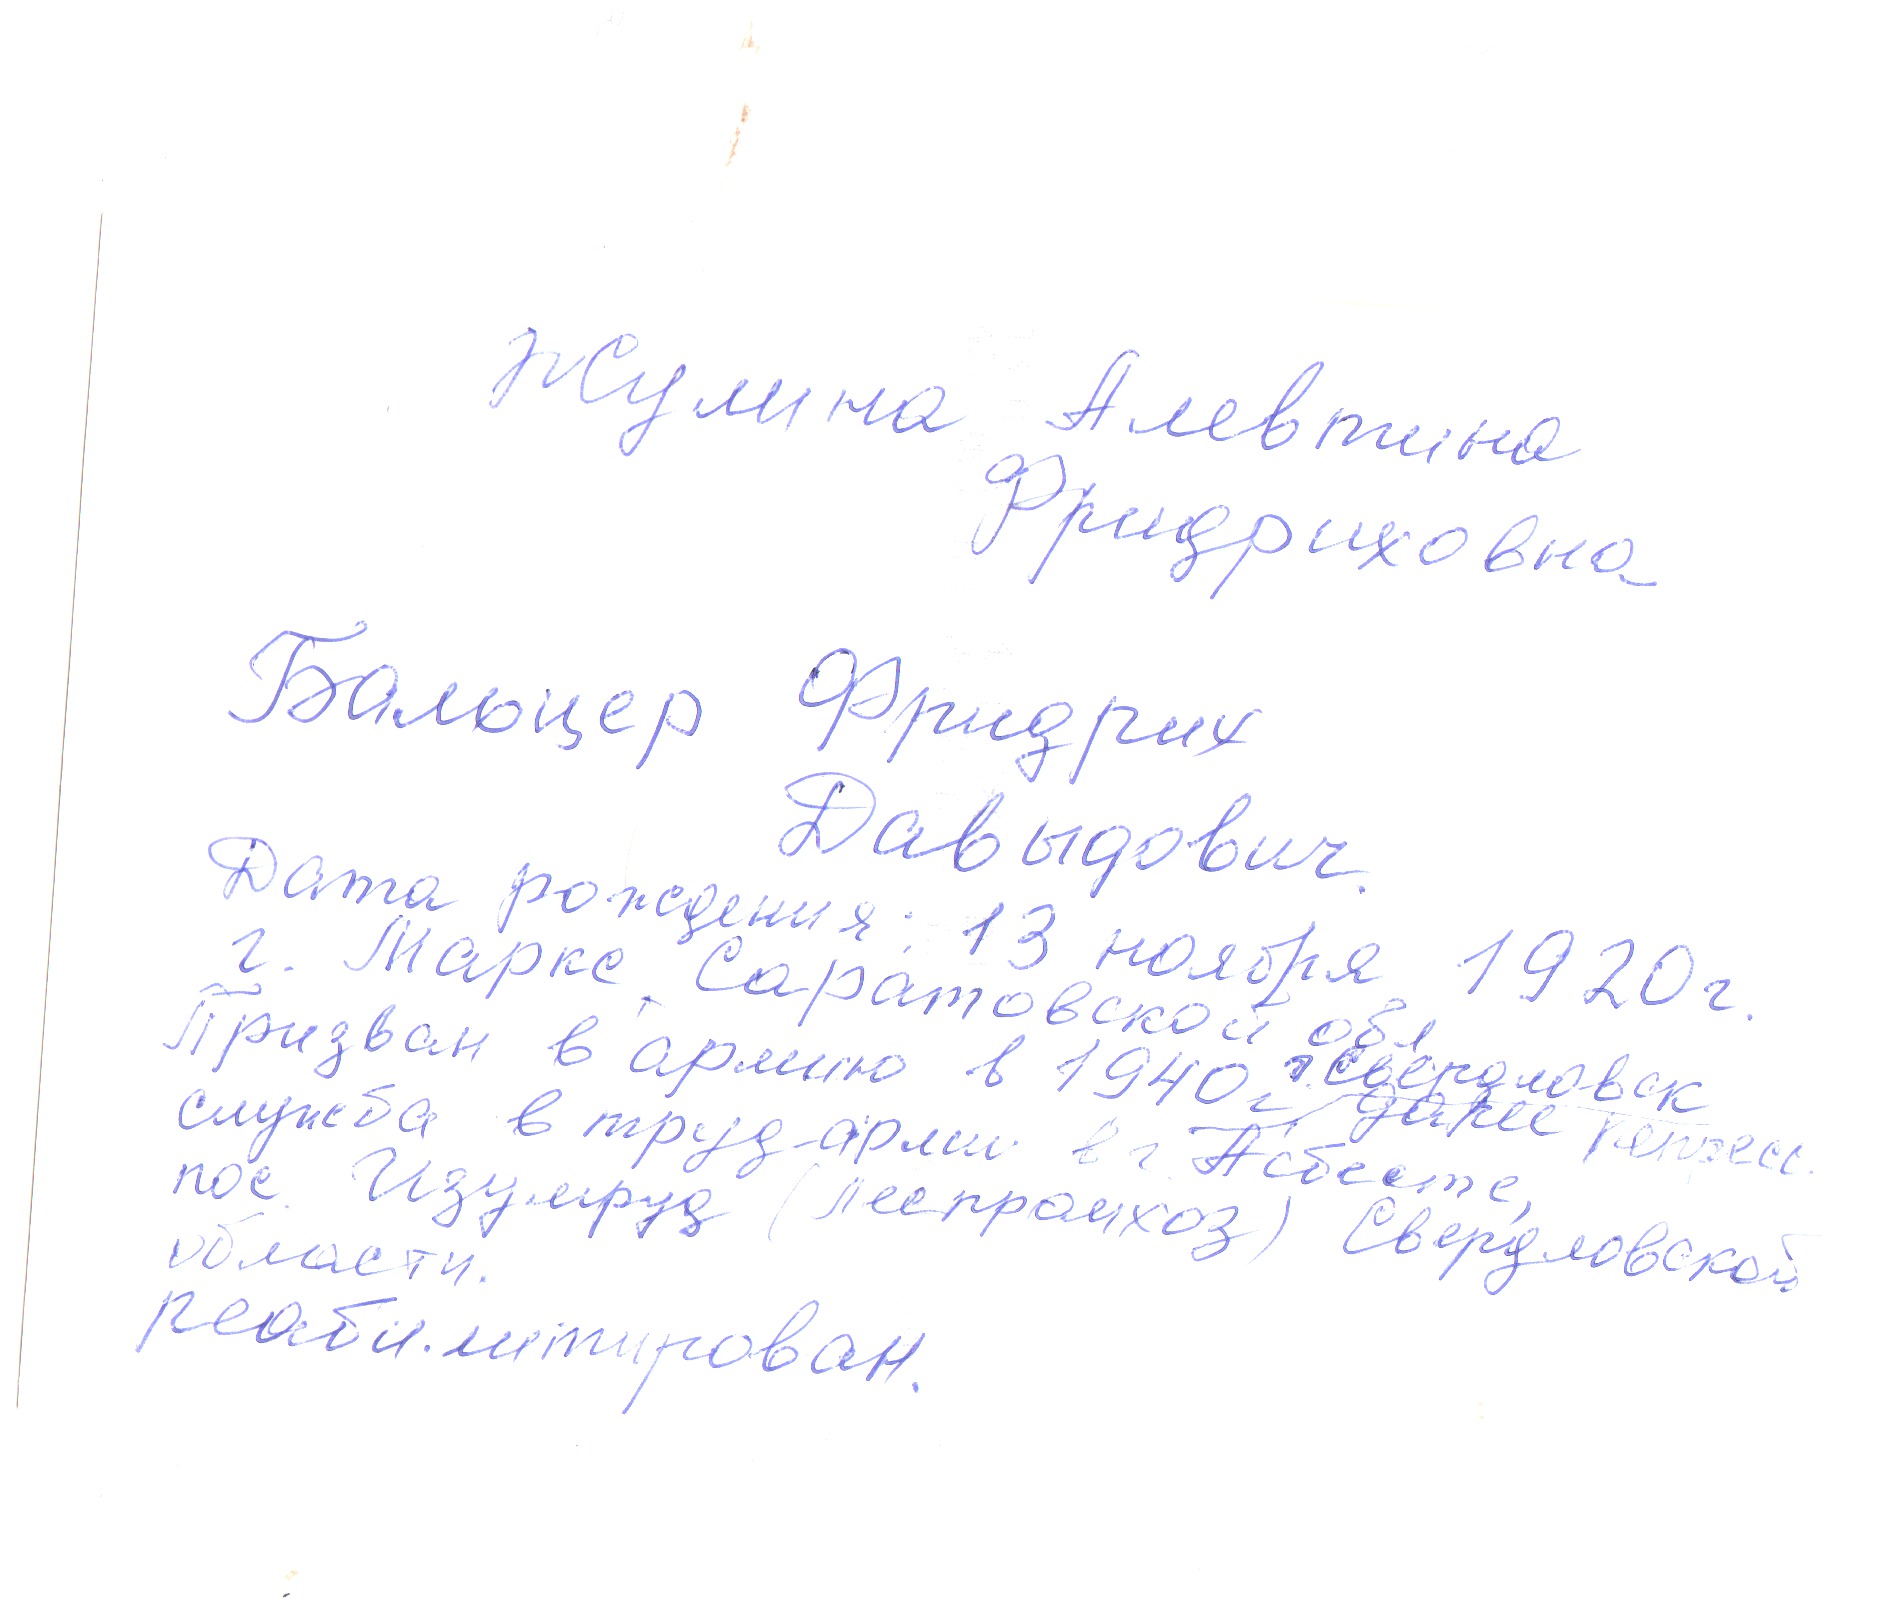 Жулина Алевтина
Фридриховна
Бальцер Фридрих
Давыдович.
Дата рождения: 13 ноября 1920 г.
г. Маркс, Саратовской обл
Призван в армию в 1940 г. г. Свердловск
далее репресс.
служба в труд-армии в г. Асбесте,
пос. Изумруд (Леспромхоз) Свердловской
области.
реабилитирован.